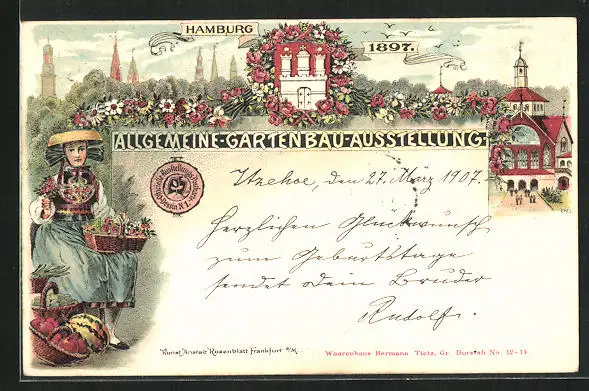 HAMBURG
1897.
ALLGEMEINE-GARTENBAU-AUSSTELLUNG.
Itzehoe, den 27. März 1907.
Herzlichen Glückwunsch
zum Geburtstage
sendet Dein Bruder
Rudolf.
Kunst Anstalt Rosenblatt Frankfurt a/M.
Waarenhaus Hermann Tietz, Gr. Burstah No. 12-14.